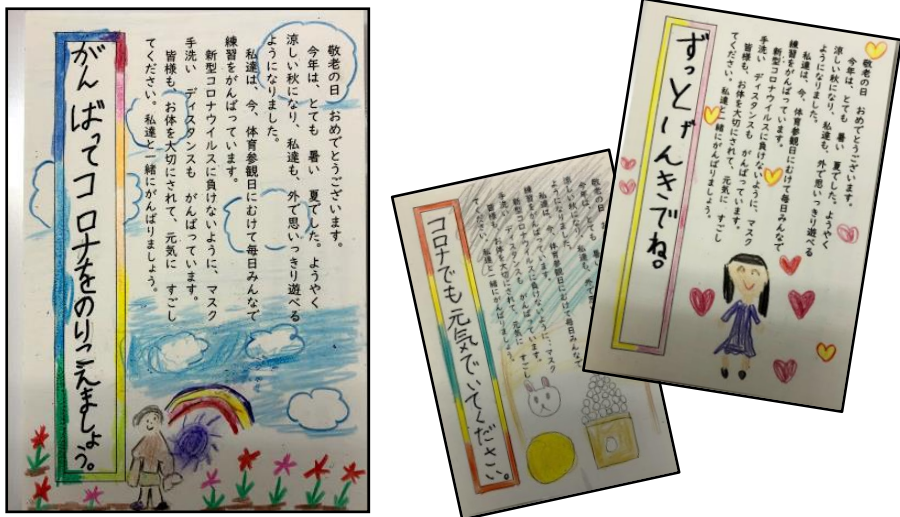 敬老の日 おめでとうございます。
今年は、とても 暑い 夏でした。ようやく
涼しい秋になり、私達も、外で思いっきり遊べる
ようになりました。
私達は、今、体育参観日にむけて毎日みんなで
練習をがんばっています。
新型コロナウイルスに負けないように、マスク
手洗い ディスタンスも がんばっています。
皆様も、お体を大切にされて、元気に すごし
てください。私達と一緒にがんばりましょう。
がんばってコロナをのりこえましょう。
敬老の日
今年は、とても 暑い
涼しい秋になり、私達も、外で思
ようになりました。
私達は、今、体育参観日にむけて毎日みんなで
練習をがんばっています。
新型コロナウイルスに負けないように、マスク
手洗い ディスタンスも がんばっています。
皆様も、お体を大切にされて、元気に すごし
てください。私達と一緒にがんばりましょう。
コロナでも元気でいてください。
敬老の日 おめでとうございます。
今年は、とても 暑い 夏でした。ようやく
涼しい秋になり、私達も、外で思いっきり遊べる
ようになりました。
私達は、今、体育参観日にむけて毎日みんなで
練習をがんばっています。
新型コロナウイルスに負けないように、マスク
手洗い ディスタンスも がんばっています。
皆様も、お体を大切にされて、元気に すごし
てください。私達と一緒にがんばりましょう。
ずっとげんきでね。